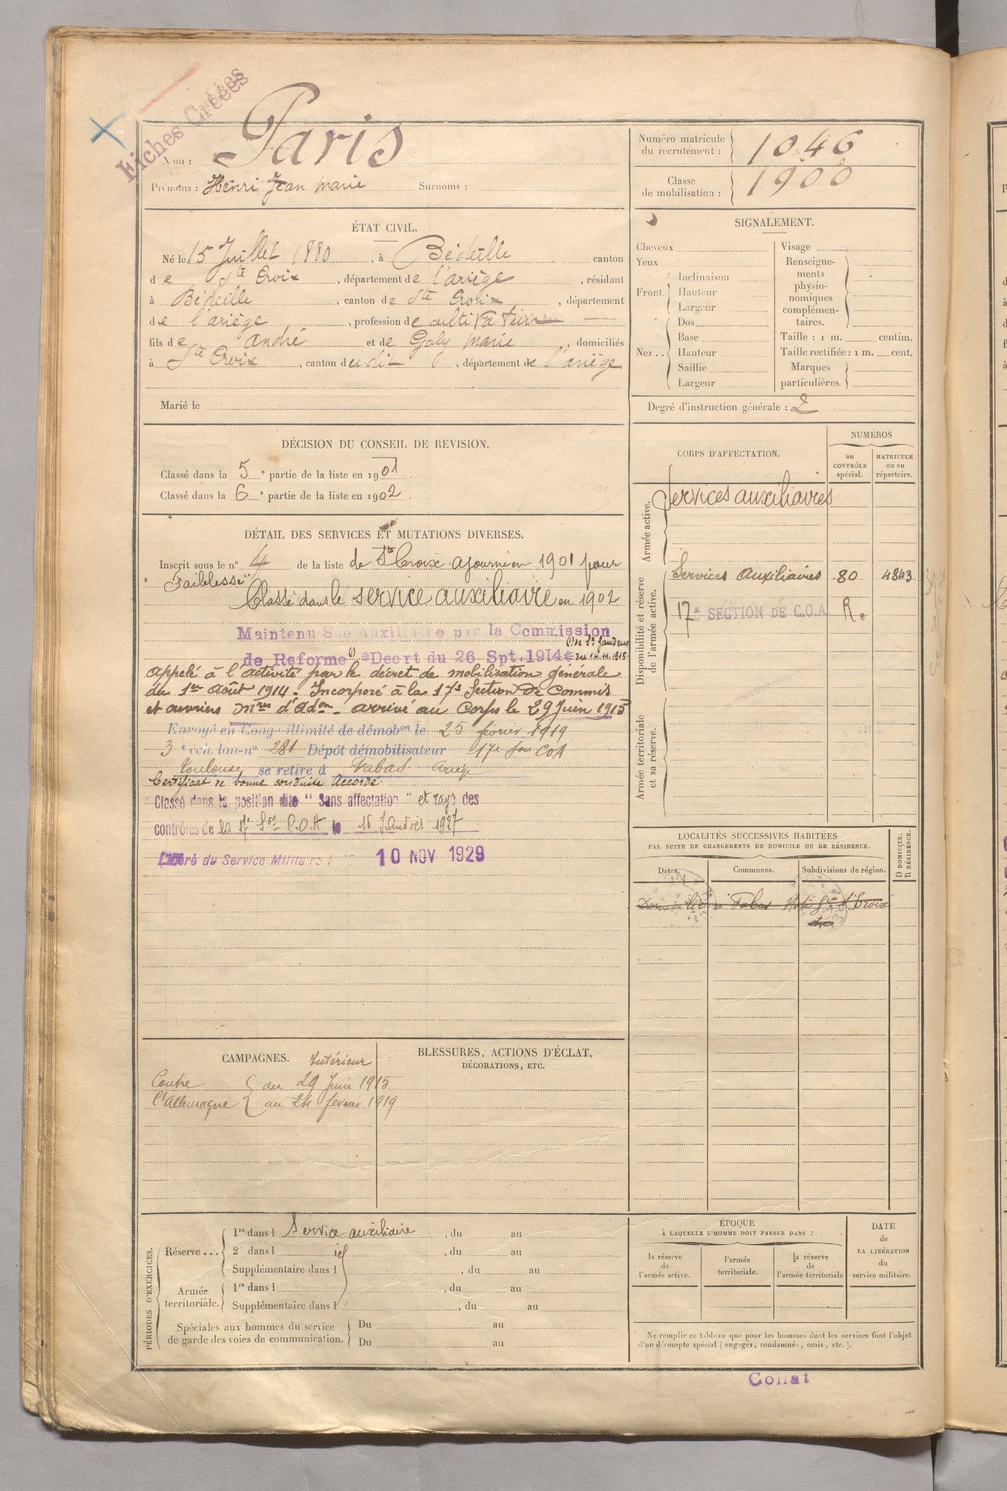 Fiches Créées
Nom : Paris
Prénoms : Henri Jean Marie Surnoms :
Numéro matricule du recrutement : 1046
Classe de mobilisation : 1900
ÉTAT CIVIL.
Né le 15 Juillet 1880, à Bédeille canton
de Ste Croix, département de l'ariège, résidant
à Bédeille, canton de Ste Croix, département
de l'ariège, profession de cultivateur
fils de André et de Galy Marie, domiciliés
à Ste Croix, canton du dit, département de l'ariège
Marié le
SIGNALEMENT.
Cheveux
Yeux
Front. Inclinaison
Hauteur
Largeur
Nez .. Dos
Base
Hauteur
Saillie
Largeur
Visage
Renseignements physionomiques complémentaires.
Taille : 1 m. centim.
Taille rectifiée : 1 m. cent.
Marques particulières.
Degré d'instruction générale : 2
DÉCISION DU CONSEIL DE REVISION.
Classé dans la 5e partie de la liste en 1901
Classé dans la 6e partie de la liste en 1902
DÉTAIL DES SERVICES ET MUTATIONS DIVERSES.
Inscrit sous le n° 4 de la liste de Ste Croix ajourné en 1901 pour
"Faiblesse"
Classé dans le service auxiliaire en 1902
Maintenu Sce Auxiliaire par la Commission
de Reforme Decrt du 26 Spt. 1914
appelé à l'activité par le décret de mobilisation générale
du 1er Août 1914. Incorporé à la 17e Section de Commis
et ouvriers mres d'adon. arrivé au Corps le 29 Juin 1915
Envoyé en Congé illimité de démobon le 25 février 1919
3e échelon n° 281 Dépôt démobilisateur 17e son COA
Toulouse se retire à Fabas Ariège
Certificat de bonne conduite Accordé
Classé dans la position dite "Sans affectation" et rayé des
contrôles de la 17e Son C.O.A le 15 Janvier 1927
Libéré du Service Militaire le 10 NOV 1929
CORPS D'AFFECTATION.
NUMÉROS
au CONTRÔLE spécial.
MATRICULE ou au répertoire.
Armée active.
Services auxiliaires
Disponibilité et réserve de l'armée active.
Services Auxiliaires 80 4843
17e SECTION DE C.O.A R.
Armée territoriale et sa réserve.
LOCALITÉS SUCCESSIVES HABITÉES
PAR SUITE DE CHANGEMENTS DE DOMICILE OU DE RÉSIDENCE.
Dates. Communes. Subdivisions de région. D DOMICILE. R RÉSIDENCE.
CAMPAGNES.
Intérieur
Contre l'Allemagne
du 29 Juin 1915
au 24 février 1919
BLESSURES, ACTIONS D'ÉCLAT,
DÉCORATIONS, ETC.
PÉRIODES D'EXERCICES.
Réserve ... 1re dans l Service auxiliaire, du au
2e dans l , du au
Supplémentaire dans l , du au
Armée territoriale. 1re dans l , du au
Supplémentaire dans l , du au
Spéciales aux hommes du service de garde des voies de communication. Du au
Du au
ÉPOQUE
À LAQUELLE L'HOMME DOIT PASSER DANS :
la réserve de l'armée active.
l'armée territoriale.
la réserve de l'armée territoriale
DATE de LA LIBÉRATION du service militaire.
Ne remplir ce tableau que pour les hommes dont les services font l'objet
d'un décompte spécial (engagés, condamnés, omis, etc.).
Collat